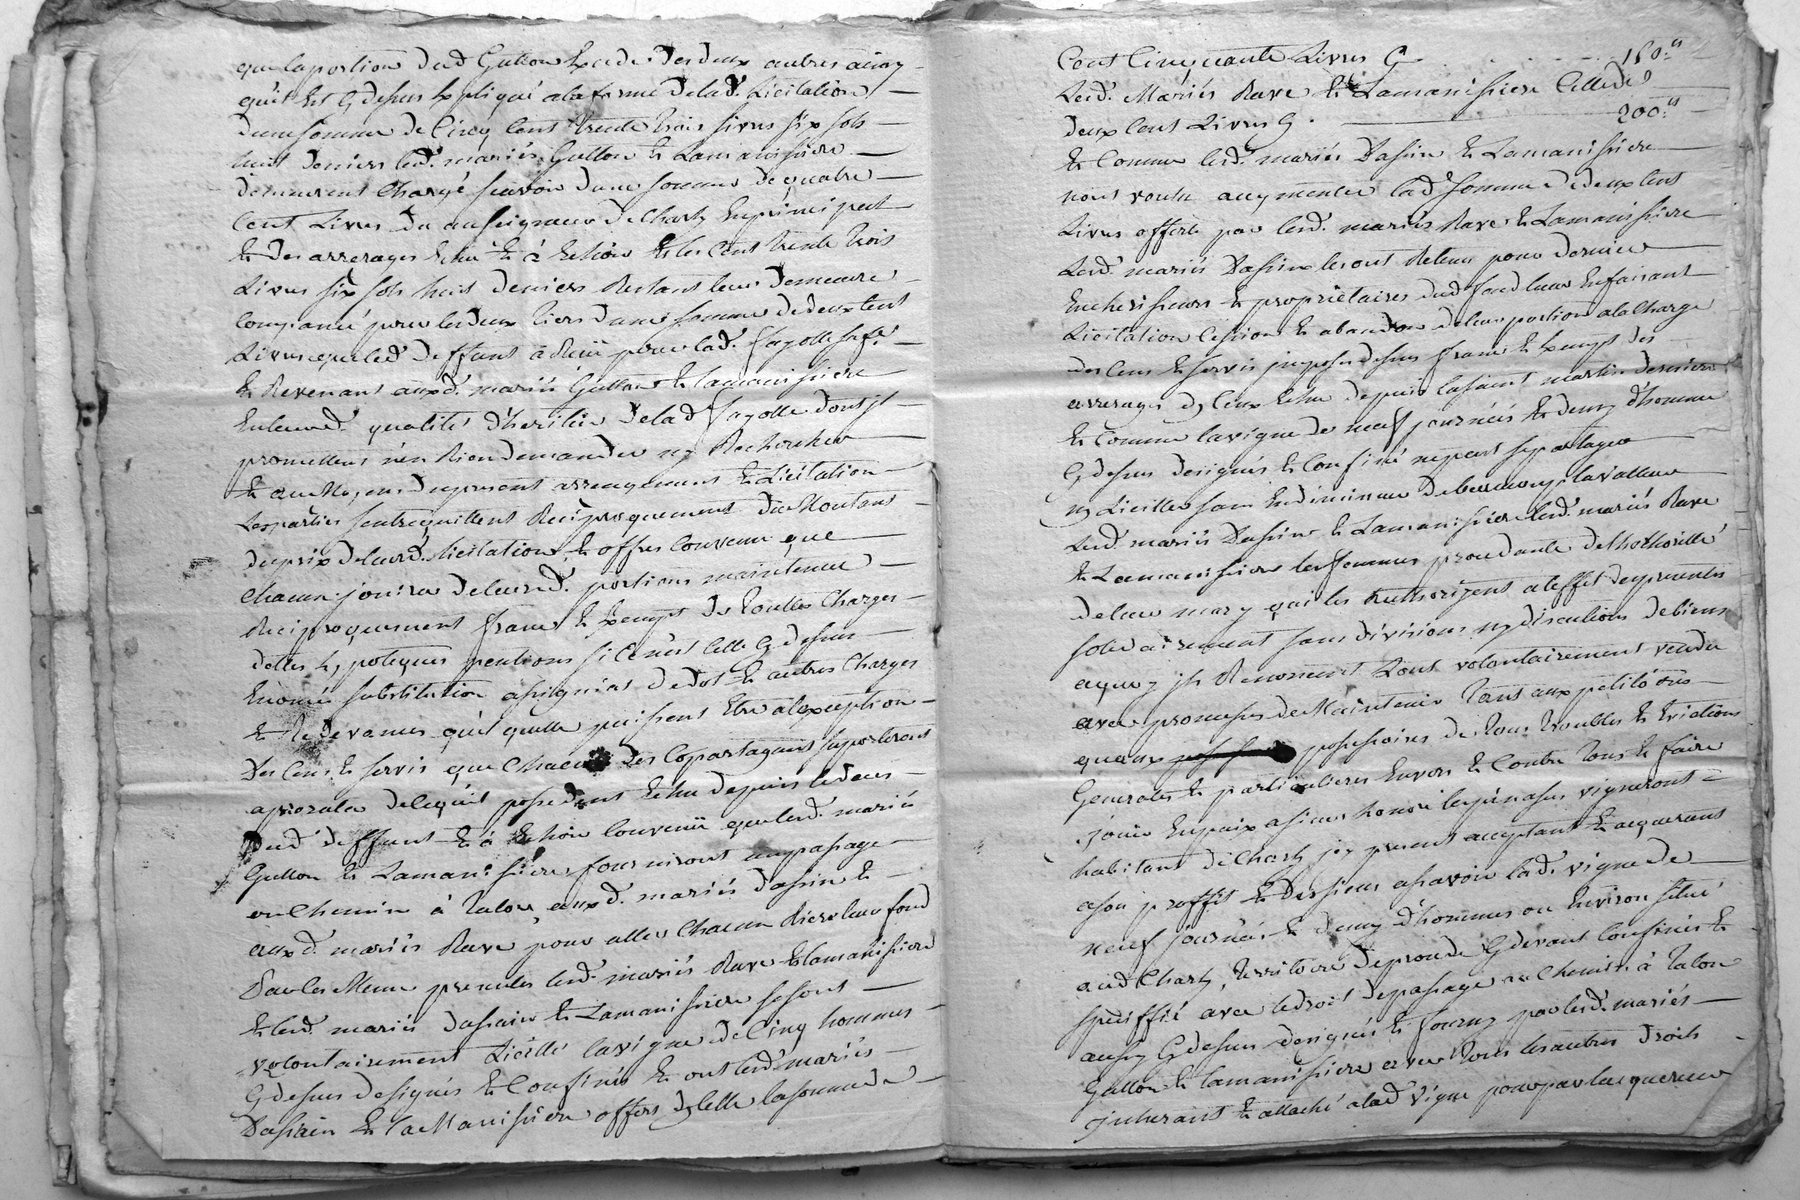 que la portion dud Gutton Excede des deux autres ainsy
qu'il Est Cy dessus Expliqué a la forme de lad. Licitation
d'une somme de Cinq Cent trente trois Livres six sols
huit deniers lesd. mariés Gutton Et Lamanissiere
demeurent Chargé scavoir d'une somme de quatre
Cent Livres du au seigneur de Charly En principal
Et des arrerages Echu Et à Echoir Et les Cent trente trois
Livres six sols huit deniers Restant leurs demeure
Compancé pour les deux tiers d'une somme de deux Cent
Livres que led deffunt à Reçü pour lad. fayolle
Et Revenant auxd. mariés Gutton Et Lamanissiere
En leursd. qualités d'heritier de lad fayolle dont jl
promettent n'en Rien demander ny Rechercher
Et au Moyen du present arrangement Et Licitation
Les parties s'entrequittent Reciproquement du Montant
du prix de leursd. licitation Et offres Convenu que
Chacun jouira de leursd. portions maintenue
Reciproquement franc Et Exempt de toutes Charges
dettes hypoteques pentions si Ce n'est Celle Cy dessus
Enoncée substitution assignat de dot Et autres Charges
Et Redevances quel quelle puissent Etre a l'exception
des Cens Et servis que Chacun des Copartageant suporteront
a prorata de Ce qu'il possedent Echu depuis le deces
dud deffunt Et à Echoir Convenü que lesd. mariés
Gutton Et Lamanissiere fourniront un passage
ou Chemin à talon auxd. mariés dassin Et
auxd. mariés Rave pour aller Chacun Riere leur fond
Par les Meme presentes lesd. mariés Rave Et Lamanissiere
Et lesd. mariés dassin Et Lamanissiere se sont
volontairement Licitté la vigne de Cinq hommes
Cy dessus designés Et Confinés Et ont lesd. mariés
Dassin Et La Manissiere offers d'jcelle la somme de
Cent Cinquante Livres Cy 150.ˡˡ
Lesd. Mariés Rave Et Lamanissiere Celle de
deux Cent Livres Cy. 200.ˡˡ
Et Comme lesd. mariés Dassin Et Lamanissiere
n'ont voulu augmenter lad. somme de deux Cent
Livres offerte par lesd. mariés Rave Et Lamanissiere
Lesd. mariés Dassin les ont Retenu pour dernier
Encherisseurs Et propriétaires dud fond leur En faisant
Licitation Cession Et abandon de leur portion a la Charge
des Cens Et servis jmposés dessus franc Et Exempt des
arrerages d'jceux Echu depuis la saint martin derniere
Et Comme la vigne de neuf journées Et demy d'homme
Cy dessus designés Et Confiné ne peut se partager
ny Liciter sans En diminuer de beaucoup la valleur
Lesd. mariés Dassin Et Lamanissiere lesd. mariés Rave
Et Lamanissiere les femmes procedante de l'hothorité
de leur mary qui les authorizent a l'effet des presentes
solidairement sans division ny discution de biens
a quoy jls Renoncent Ront volontairement vendu
avec promesses de Maintenir tant aux petitoires
quaux possessoires de tous troubles Et Evictions
Generales Et particulieres Envers Et Contre tous Et faire
jouir En paix a sieur honoré vigneront
habitant de Charly jcy present acceptant Et acquerant
a son proffit Et Des siens a savoir lad. vigne de
neuf journées Et demy d'hommes ou Environ situé
aud Charly, territoire de pron de Cy devant Confinés Et
speciffié avec le droit de passage ou Chemin à talon
aussy Cy dessus designés Et fourny par lesd. mariés
Gutton Et Lamanissiere avec tous les autres droits
jnherant Et attaché a lad vigne pour par l'acquereur